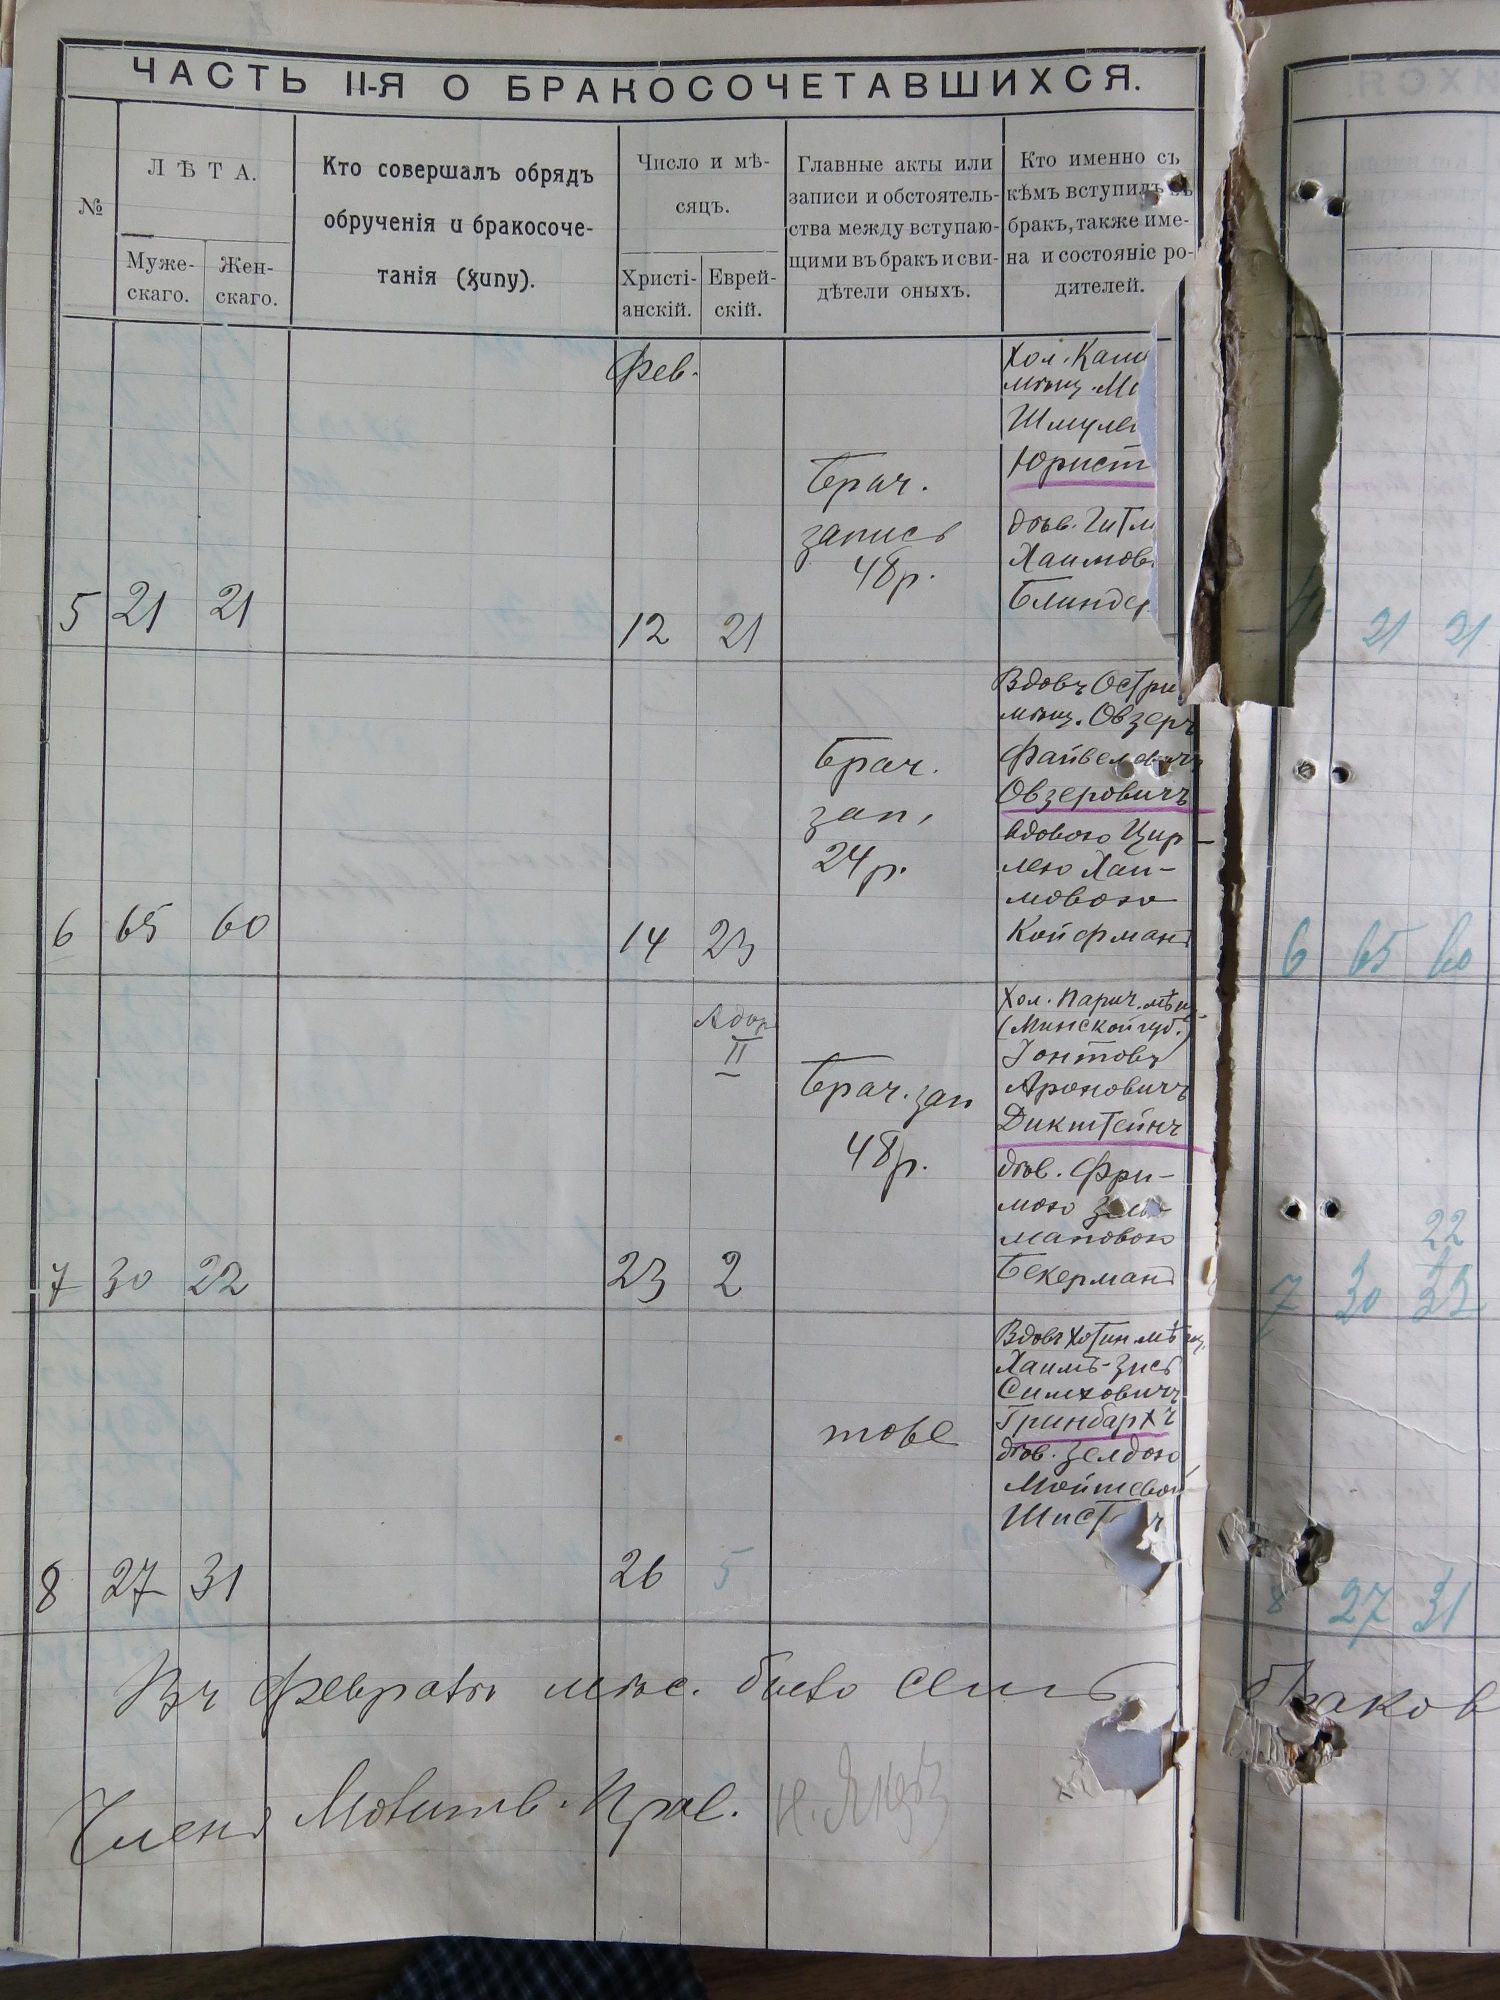 ЧАСТЬ II-Я О БРАКОСОЧЕТАВШИХСЯ.
№
ЛѢТА.
Муже-
скаго.
Жен-
скаго.
Кто совершалъ обрядъ
обрученія и бракосоче-
танія (хупу).
Число и мѣ-
сяцъ.
Христі-
анскій.
Еврей-
скій.
Главные акты или
записи и обстоятель-
ства между вступаю-
щими въ бракъ и сви-
дѣтели оныхъ.
Кто именно съ
кѣмъ вступилъ въ
бракъ, также име-
на и состояніе ро-
дителей.
5 21 21
Фев.
12 21
Брач.
запись
48р.
Хол. Кам
мѣщ. М
Шмуле
Юрист
дѣв. Гитл
Хаимов
Блиндер
6 65 60
14 23
Брач.
зап.
24р.
Вдовъ Остри
мѣщ. Овзеръ
Файвеловичъ
Овзеровичъ
вдовою Цир-
лею Хаи-
мовою
Койфманъ
7 30 22
23
Адор
II
2
Брач. зап
48р.
Хол. Парич. мѣщ.
(Минской губ.)
Іонтовъ
Ароновичъ
Дикштейнъ
дѣв. Фри-
мою Зель
мановою
Бекерманъ
8 27 31
26 5
тоже
Вдовъ Хотин мѣщ.
Хаимъ-Зись
Симховичъ
Гринбархъ
дѣв. Зелдою
Мойшевой
Шист
Въ февралѣ мѣс. было семь браков
Членъ Молитв. Прав.
21 21
6 65 60
22
7 30 32
8 27 31